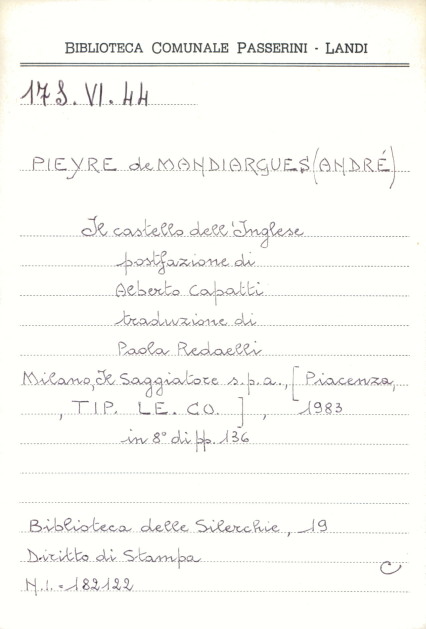 BIBLIOTECA COMUNALE PASSERINI - LANDI
17S.VI.44
PIEYRE de MANDIARGUES (ANDRÉ)
Il castello dell'Inglese
postfazione di
Alberto Capatti
traduzione di
Paola Redaelli
Milano, Il Saggiatore s.p.a., [Piacenza,
, TIP. LE. CO. ] , 1983
in 8° di pp. 136
Biblioteca delle Silerchie, 19
Diritto di Stampa
N.I. = 182122
C